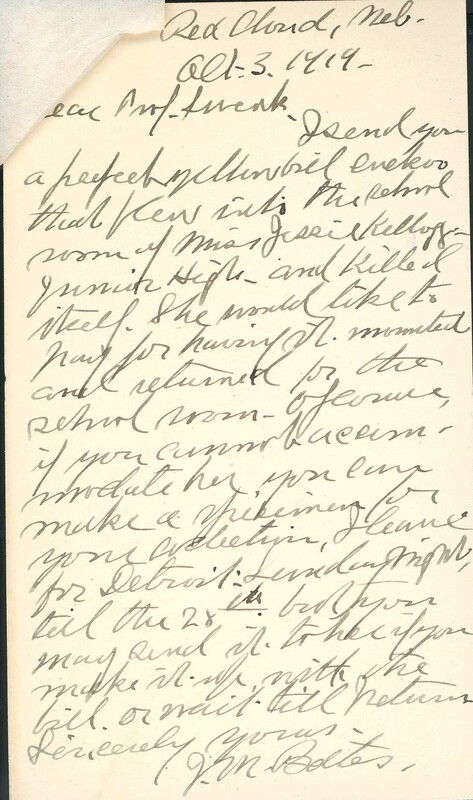 Red Cloud, Neb.
Oct. 3. 1919-
ear Prof. Swenk.
I send you
a perfect yellow bill cuckoo
that flew into the school
room of Miss Jessie Kellogg-
Junior High- and killed
itself. She would like to
pay for having it mounted
and returned for the
school room- Of course,
if you cannot accom-
modate her you can
make a specimen for
your collection, I leave
for Detroit Sunday night,
till the 28th but you
may send it to her if you
make it up with the
bill. or wait till I return
Sincerely yours-
J. M. Bates.